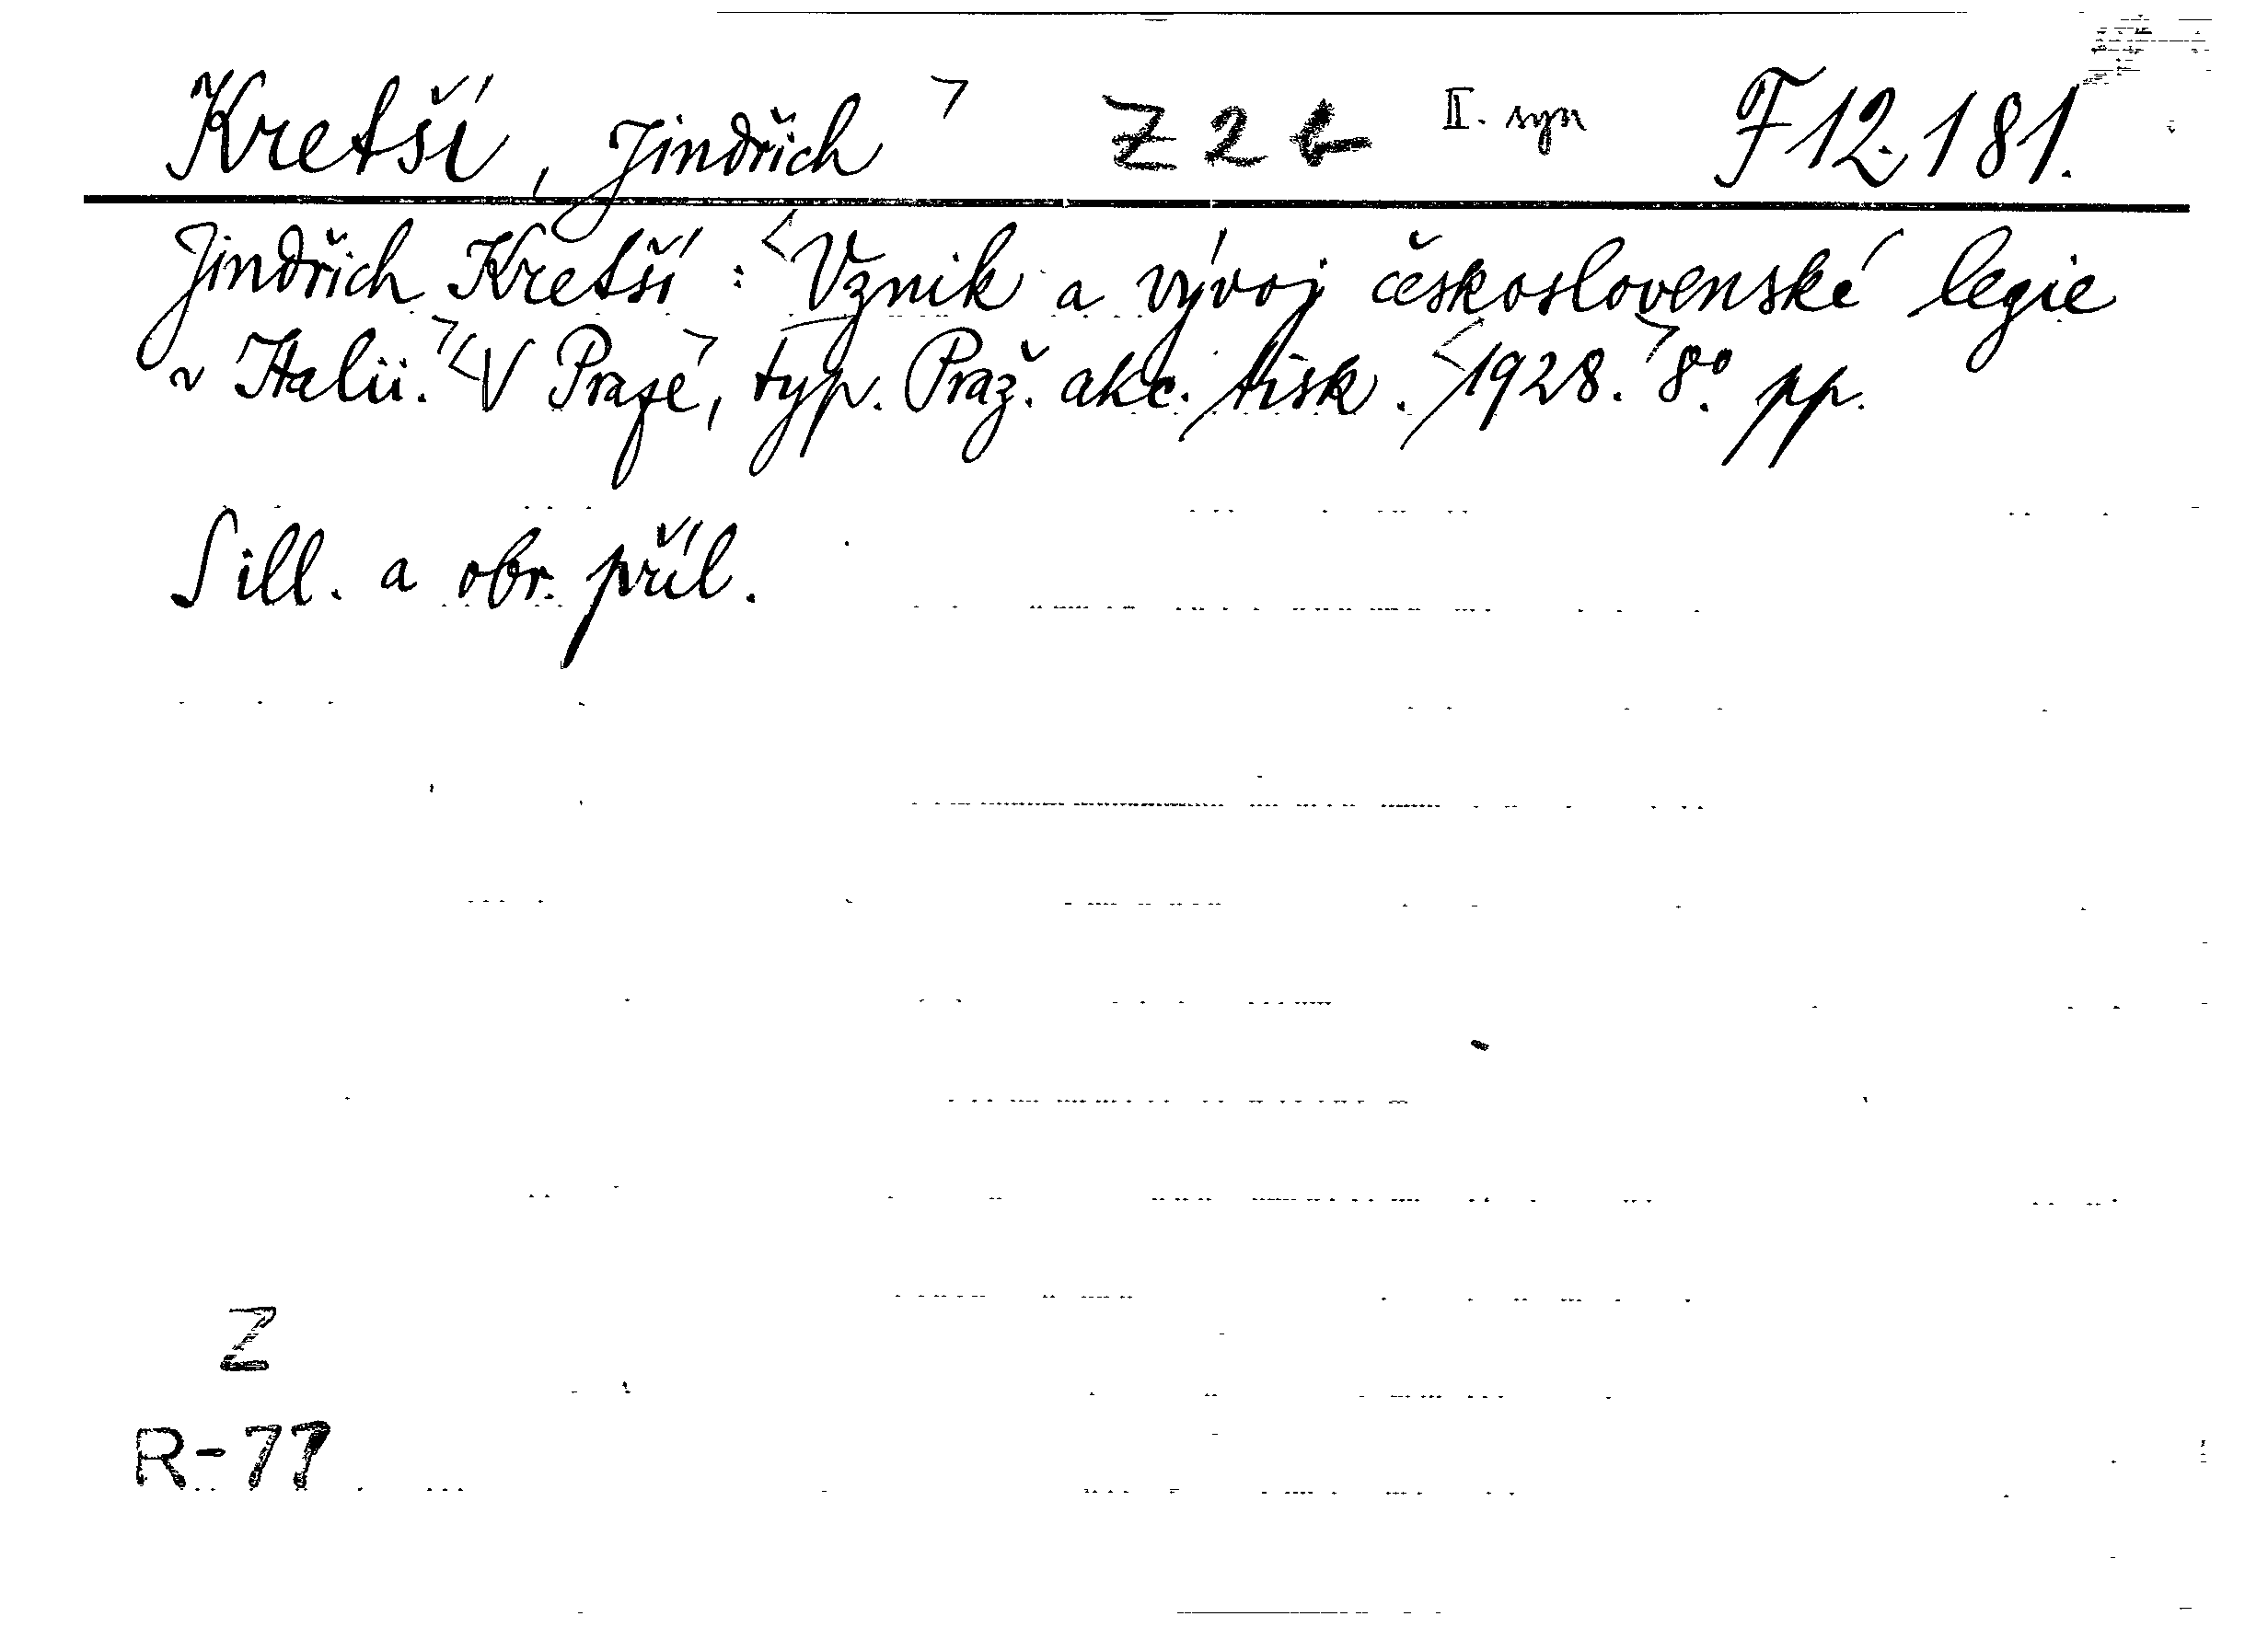 Kretší, Jindřich Z 2 b II. syn F 12.181.
Jindřich Kretší: Vznik a vývoj československé legie
v Italii. V Praze, typ. Praž. akc. tisk. 1928. 8°. pp.
S ill. a obr. příl.
Z
R-77